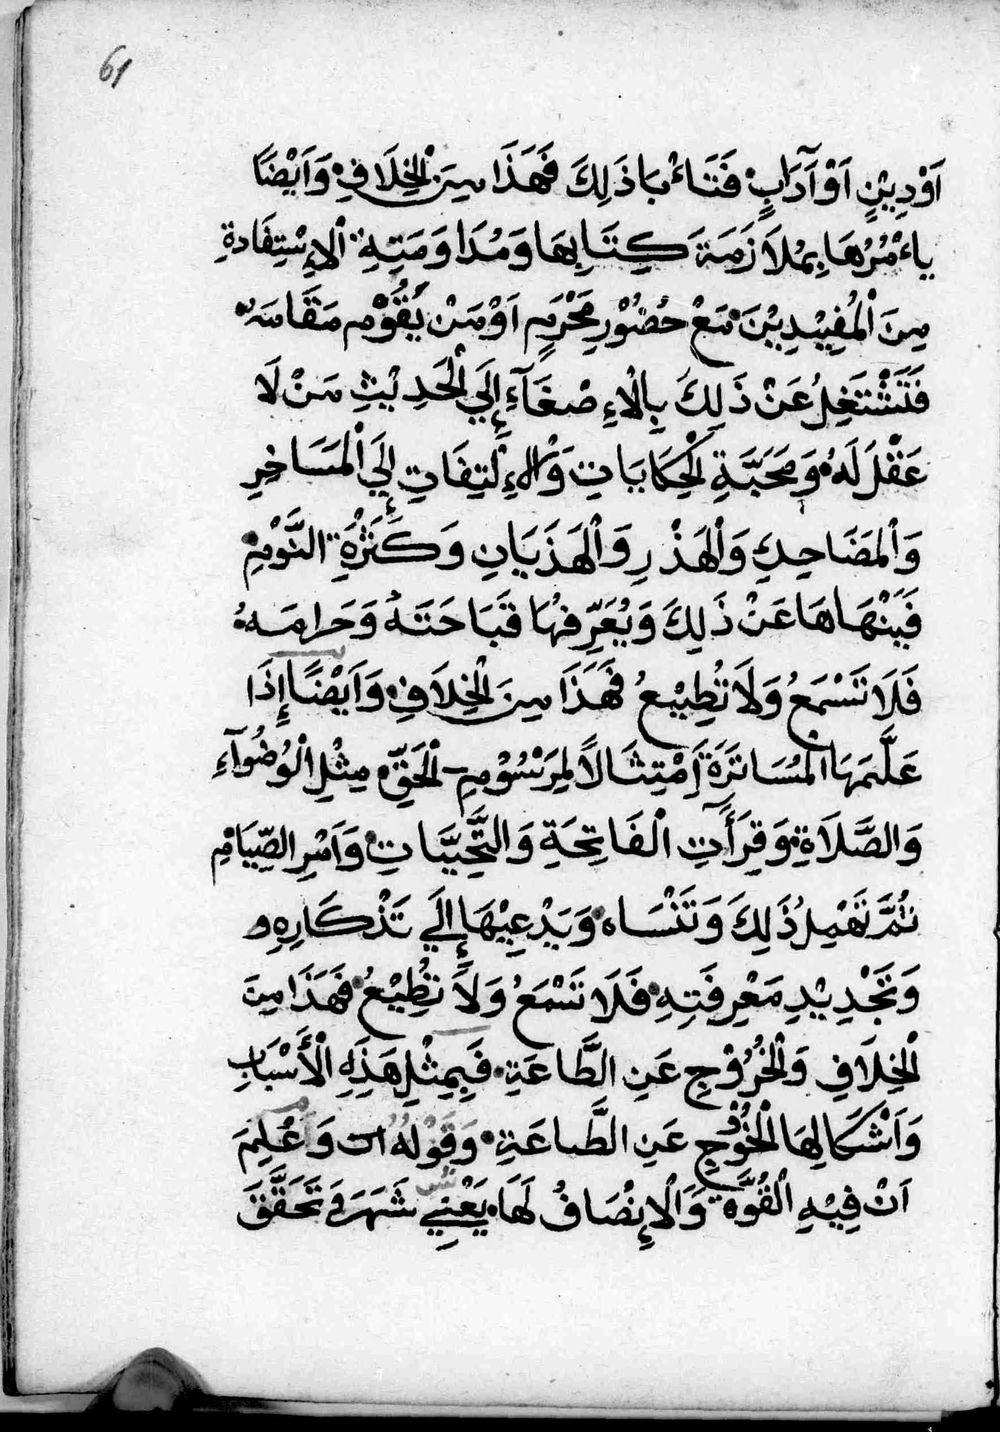 61
اَوْدِيْنٍ اَوْ آدَابٍ فَتَاءْبَا ذَلِكَ فَهَذَا مِنَ الْخِلَافِ وَاَيْضًا
ياءْمُرُهَا بِمُلَازَمَةِ كِتَابِهَا وَمُدَاوَمَتِهِ الْاِسْتِفَادةِ
مِنَ الْمُفِيْدِيْنَ مَعْ حُضُوْرِ مَحْرَمٍ اَوْ مَنْ يَقُوْم مَقَامَهُ
فَتَشْتَغِلُ عَنْ ذَلِكَ بِالْاءِصْغَآءِ إِلَي الْحَدِيْثِ مَنْ لَا
عَقْلَ لَهُ وَمَحَبَّةِ الْحِكَايَاتِ وَالْاءِلْتِفَاتِ إِلَي الْمَسَاخِرِ
وَالْمَضَاحِكِ وَالْهَذْرِ وَالْهَذَيَانِ وَكَثْرَةِ النَّوْمِ
فَيَنْهَاهَا عَنْ ذَلِكَ وَيُعَرِّفهَا قَبَاحَتَهُ وَحَرامَهُ
فَلَا تَسْمَعُ وَلَا تُطِيْعُ فَهَذَا مِنَ الْخِلَافِ وَاَيْضًا إِذَا
عَلَّمَهَا الْمُسَاتَرَةَ اِمْتِثَالًا لِمَرْسُوْمِ الْحَقِّ مِثْلِ الْوُضُوآءِ
وَالصَّلَاةِ وَقِرَأَآتِ الْفَاتِحَةِ وَالتَّحِيَّاتِ وَاَمْرِ الصِّيَامِ
ثُمَّ تَهْمِلُ ذَلِكَ وَتَنْسَاه وَيَدْعِيْهَا إِلَي تَذْكَارِهِ و
وَتَجْدِيْدِ مَعْرِفَتِهِ فَلَا تَسْمَعُ وَلَا تُطِيْعُ فَهَذَا مِنَ
الْخِلَافِ وَالْخُرُوْجِ عَنِ الطَّاعَةِ فَبِمِثْلِ هَذِهِ الْأَسْبَابِ
وَاَشْكَالِهَا الْخُرُوْجِ عَنِ الطَّاعَةِ وَقَوْلُهُ ان وَعُلِمَ
اَنْ فِيْهِ الْقُوَّة وَالْاِنْصَافُ لَهَا يَعْنِي شَهَرَ وَتَحَقَّقَ